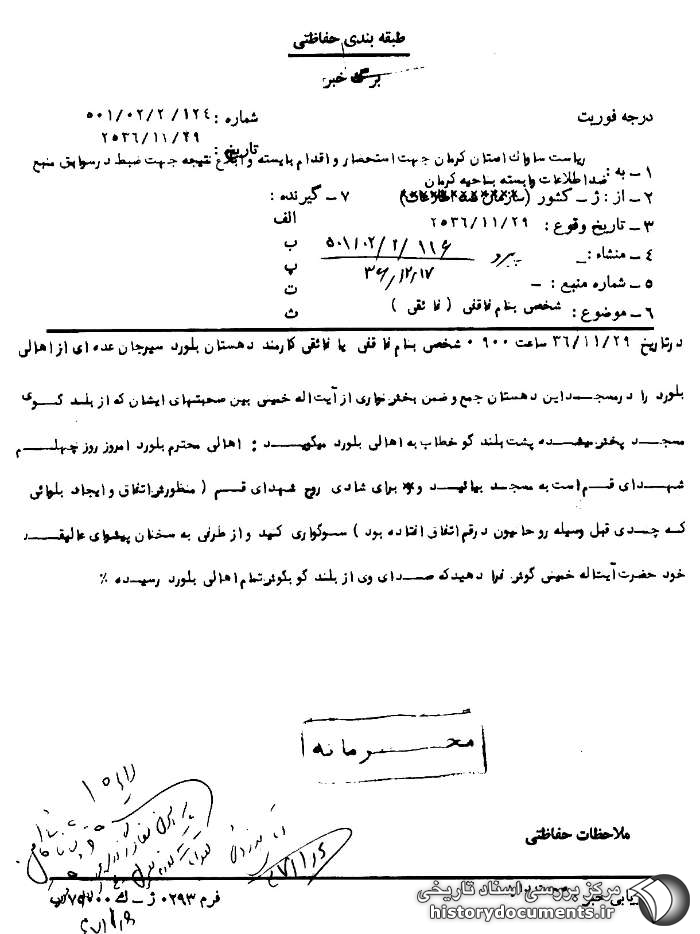 طبقه بندی حفاظتی
برگ خبر
درجه فوریت
شماره : ۵۰۱/۰۲/۲/۱۲۴
تاریخ : ۲۵۳۶/۱۱/۲۹
۱ – به : ریاست ساواک استان کرمان جهت استحضار و اقدام بایسته و ابلاغ نتیجه جهت ضبط در سوابق منبع
ضد اطلاعات وابسته بناحیه کرمان
۲ – از : ژ – کشور
۷ – گیرنده :
۳ – تاریخ وقوع : ۲۵۳۶/۱۱/۲۹
الف
۴ – منشاء : – پیرو ۵۰۱/۰۲/۲/۱۱۶
ب
۳۶/۱۲/۱۷
پ
۵ – شماره منبع : –
ت
۶ – موضوع : شخصی بنام فاققی ( فائقی )
ث
درتاریخ ۳۶/۱۱/۲۹ ساعت ۰۹۰۰ شخصی بنام فاققی یا فائقی کارمند دهستان بلورد سیرجان عده ای از اهالی
بلورد را درمسجد این دهستان جمع و ضمن پخش نواری از آیت اله خمینی بین صحبتهای ایشان که از بلند گوی
مسجد پخش میشده پشت بلند گو خطاب به اهالی بلورد میگوید : اهالی محترم بلورد امروز روز چهلم
شهدای قم است به مسجد بیائید و برای شادی روح شهدای قم ( منظورش اتفاق و ایجاد بلوائی
که چندی قبل وسیله روحانیون درقم اتفاق افتاده بود ) سوگواری کنید و از طرفی به سخنان پیشوای عالیقدر
خود حضرت آیت اله خمینی گوش فرا دهید که صدای وی از بلند گو بگوش تمام اهالی بلورد رسیده ٪
محرمانه
ملاحظات حفاظتی
فرم ۰۲۹۳ ژ – ک
مرکز بررسی اسناد تاریخی
historydocuments.ir